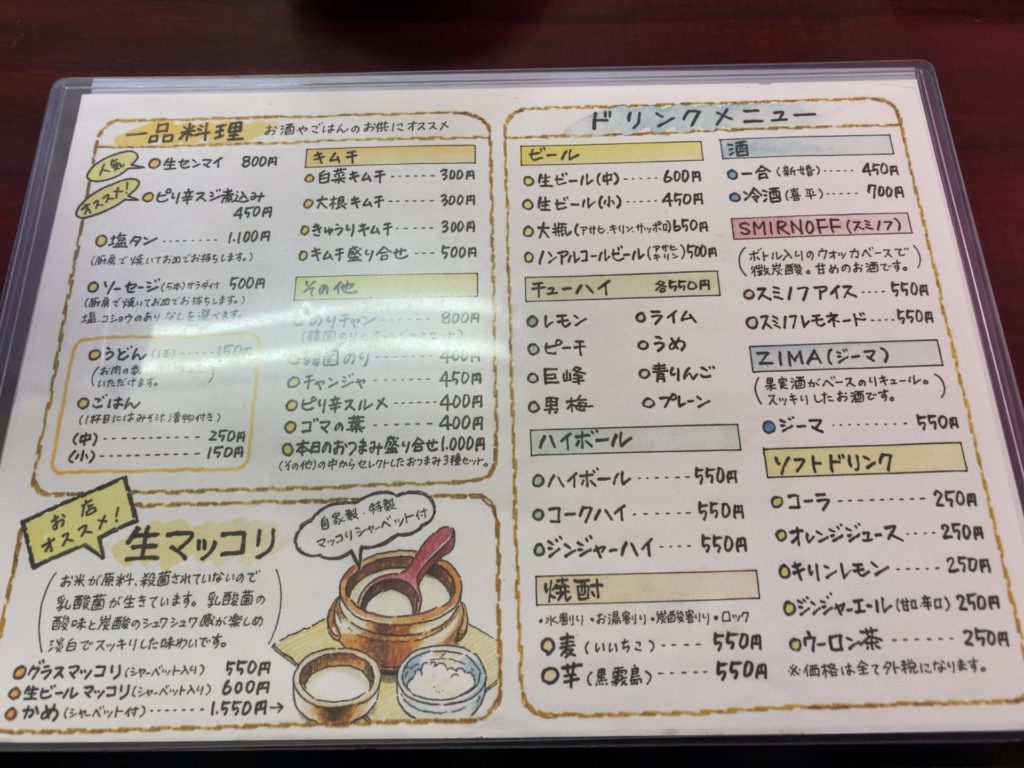 一品料理 お酒やごはんのお供にオススメ
人気
生センマイ 800円
オススメ!
ピリ辛スジ煮込み
450円
塩タン 1.100円
(厨房で焼いてお皿でお持ちします。)
ソーセージ(5本)サラダ付 500円
(厨房で焼いてお皿でお持ちします。)
塩、コショウのありなしを選べます。
うどん(1玉) 150円
(お肉の
いただけます。
ごはん
(1杯目にはみそ汁、漬物付き)
(中) 250円
(小) 150円
キムチ
白菜キムチ 300円
大根キムチ 300円
きゅうりキムチ 300円
キムチ盛り合せ 500円
その他
のりチャン 800円
(韓国のりとチャンジャのセット)
韓国のり 400円
チャンジャ 450円
ピリ辛スルメ 400円
ゴマの葉 400円
本日のおつまみ盛り合せ 1.000円
(その他)の中からセレクトしたおつまみ3種セット。
お店
オススメ!
生マッコリ
自家製・特製
マッコリシャーベット付
お米が原料、殺菌されていないので
乳酸菌が生きています。乳酸菌の
酸味と炭酸のシュワシュワ感が楽しめ
淡白でスッキリした味わいです。
グラスマッコリ(シャーベット入り) 550円
生ビールマッコリ(シャーベット入り) 600円
かめ(シャーベット付) 1.550円→
ドリンクメニュー
ビール
生ビール(中) 600円
生ビール(小) 450円
大瓶(アサヒ、キリン、サッポロ) 650円
ノンアルコールビール(アサヒ キリン) 500円
チューハイ 各550円
レモン ライム
ピーチ うめ
巨峰 青りんご
男梅 プレーン
ハイボール
ハイボール 550円
コークハイ 550円
ジンジャーハイ 550円
焼酎
・水割り ・お湯割り ・炭酸割り ・ロック
麦(いいちこ) 550円
芋(黒霧島) 550円
酒
一合(新婚) 450円
冷酒(喜平) 700円
SMIRNOFF(スミノフ)
(ボトル入りのウォッカベースで
微炭酸。甘めのお酒です。)
スミノフアイス 550円
スミノフレモネード 550円
ZIMA(ジーマ)
(果実酒がベースのリキュール。
スッキリしたお酒です。)
ジーマ 550円
ソフトドリンク
コーラ 250円
オレンジジュース 250円
キリンレモン 250円
ジンジャーエール(甘口、辛口) 250円
ウーロン茶 250円
※価格は全て外税になります。